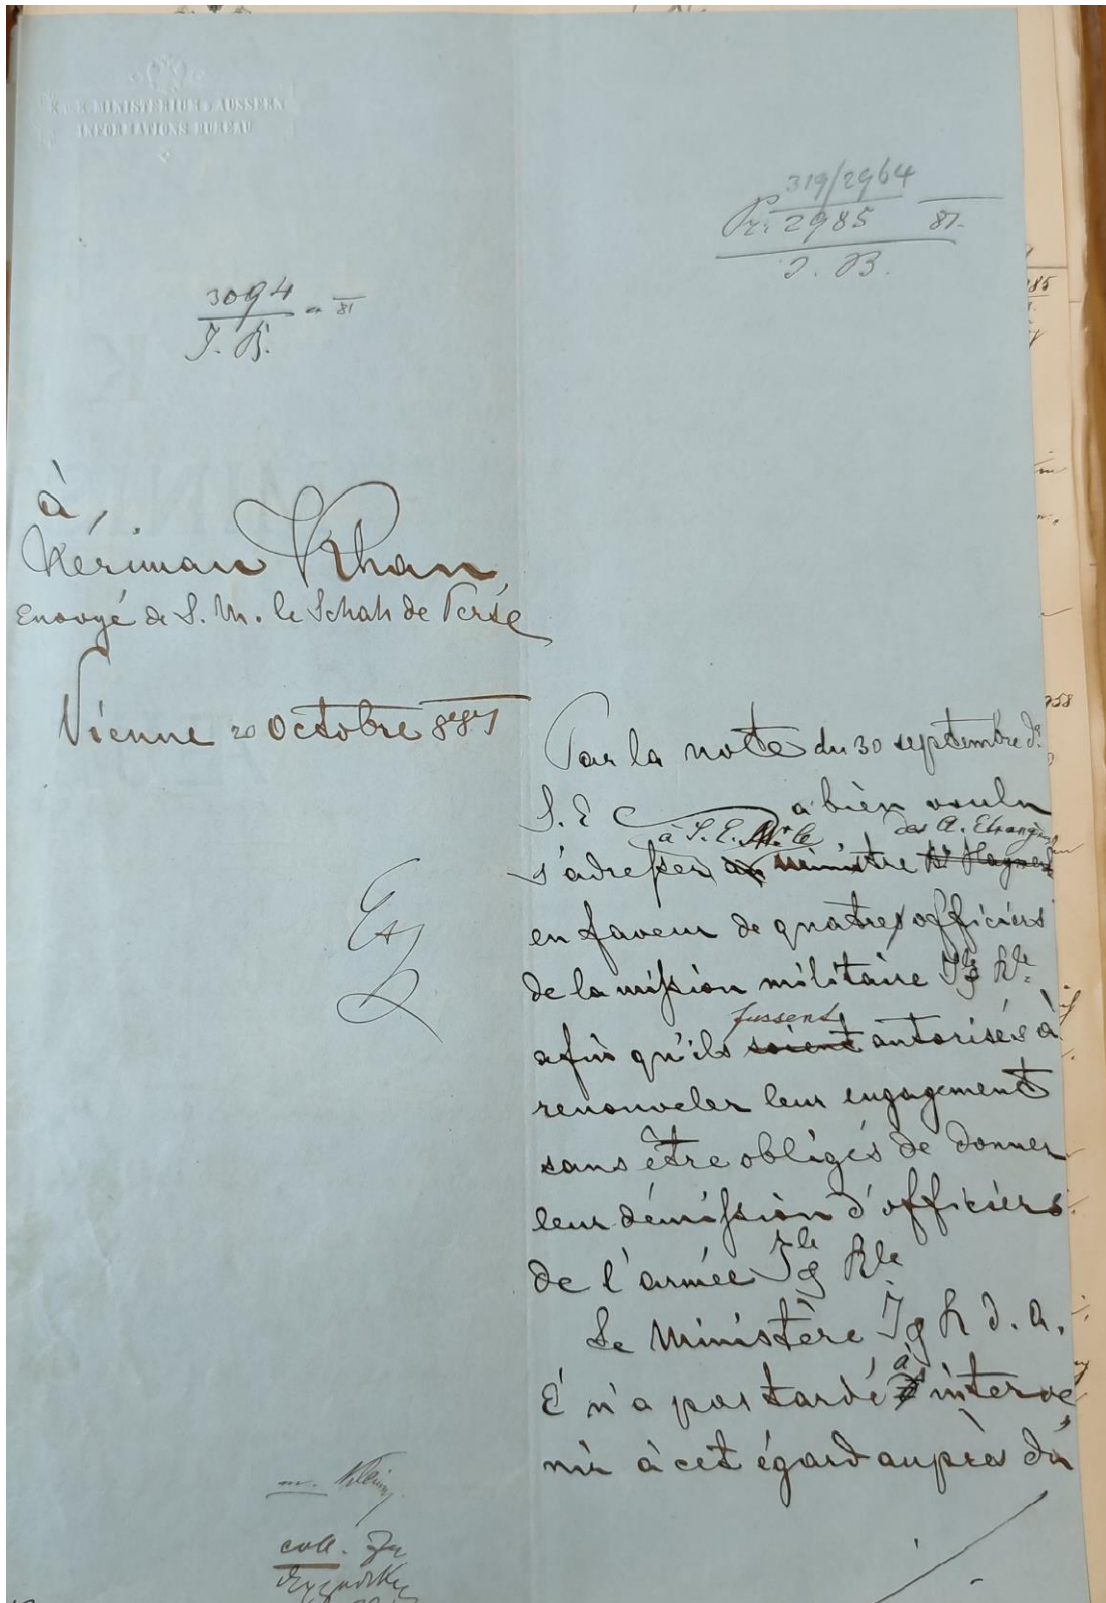 K. u. K. MINISTERIUM D. AUSSERN
INFORMATIONS BUREAU
319/2964
Pr. 2985 81.
J. B.
3094 81
J. B.
à
Nériman Khan,
Envoyé de S. M. le Schah de Perse
Vienne 20 Octobre 881
Par la note du 30 septembre dr
S. E a bien voulu
à S. E. Mr. le des A. Etrangères
s'adresser au ministre
en faveur de quatre officiers
de la mission militaire I le & R le
fussent
afin qu'ils soient autorisés à
renouveler leur engagement
sans être obligés de donner
leur démission d'officiers
de l'armée I le & R le
Le Ministère I & R d. A.
à
E n'a pas tardé d' interve
nir à cet égard auprès du
coll.